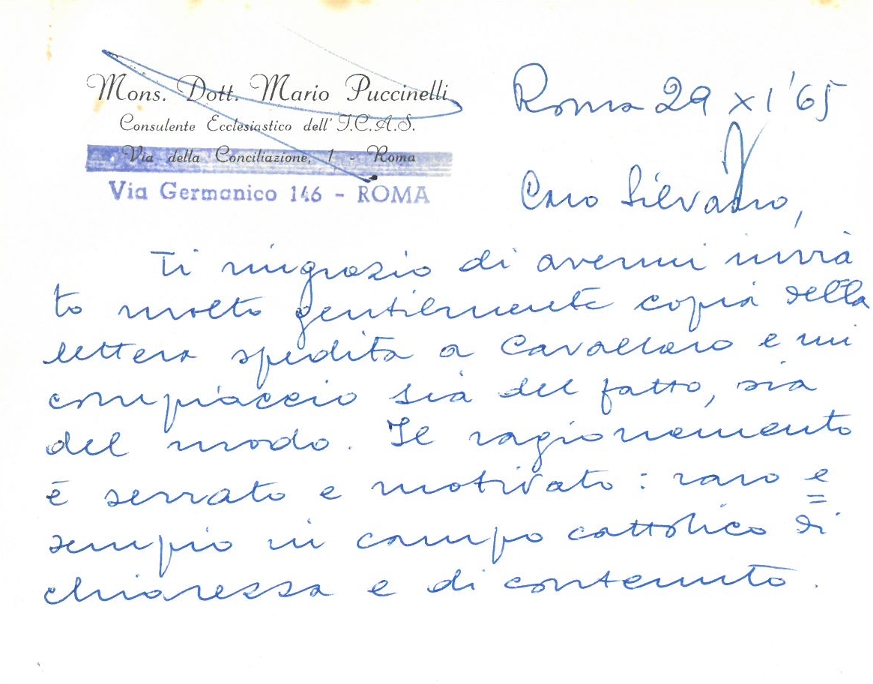 Mons. Dott. Mario Puccinelli
Consulente Ecclesiastico dell' I.C.A.S.
Via della Conciliazione, 1 - Roma
Via Germanico 146 - ROMA
Roma 29 XI '65
Caro Silvano,
Ti ringrazio di avermi invia
to molto gentilmente copia della
lettera spedita a Cavallaro e mi
compiaccio sia del fatto, sia
del modo. Il ragionamento
è serrato e motivato: raro e
sempio in campo cattolico di
chiarezza e di contenuto.